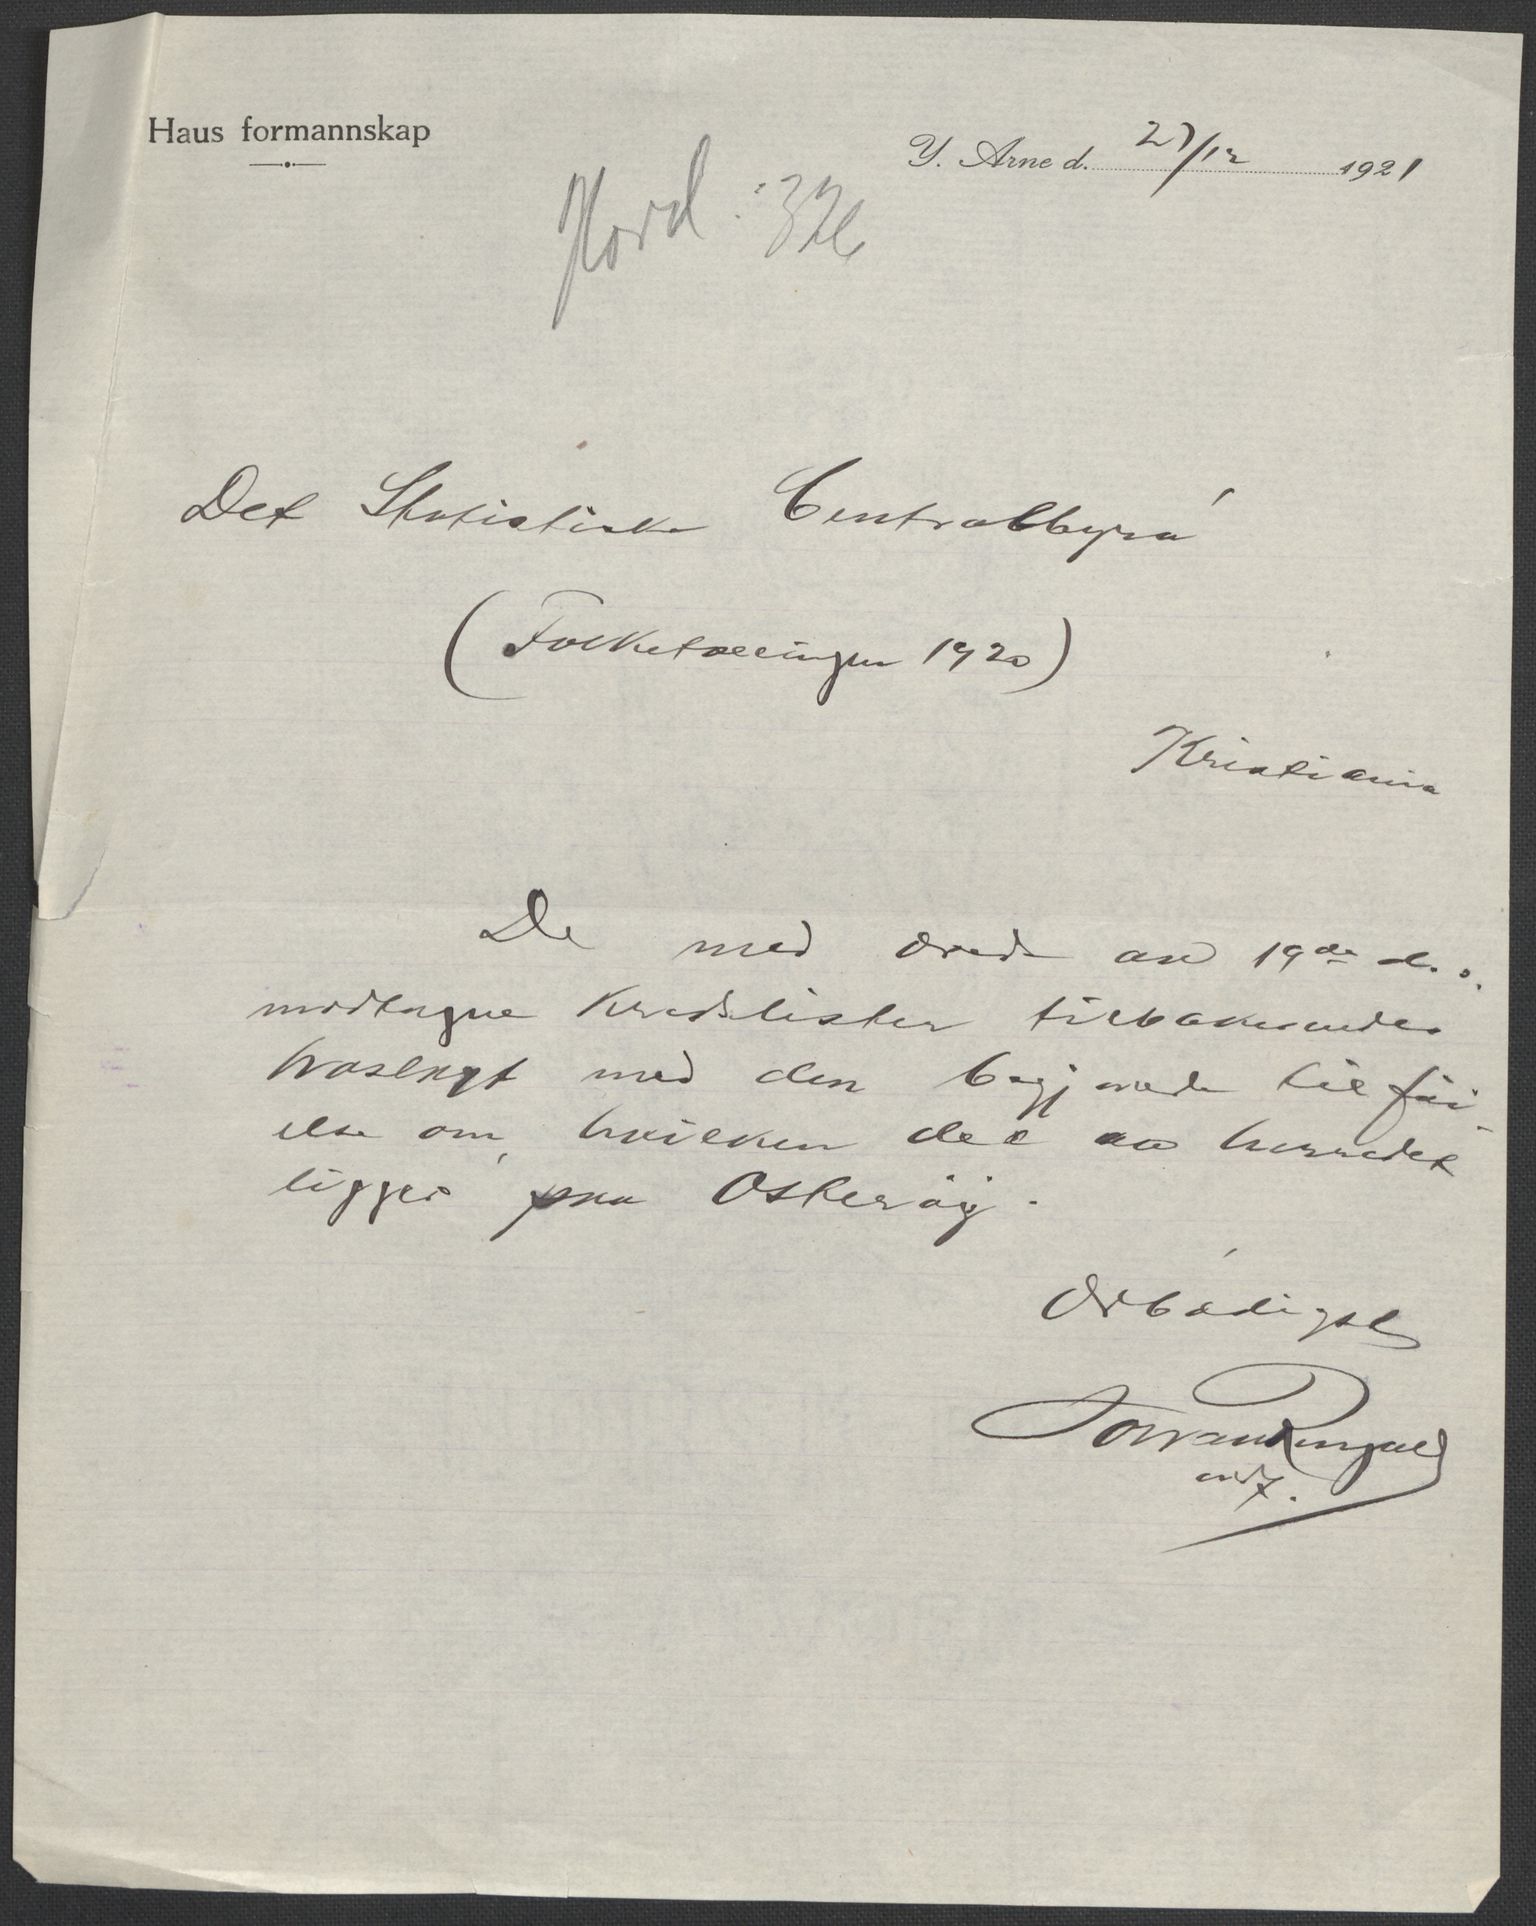 Haus formannskap
Y. Arne d. 27/12 1921
Hord: 32b
Det Statistiske Centralbyrå
(Folketællingen 1920)
Kristiania
De med ærede av 19de ds.
modtagne Kredslister tilbakesendes
vedlagt med den begjærede tilføi
else om, hvilken del av herredet
ligger paa Osterøy.
Ærbødigst
ordf.